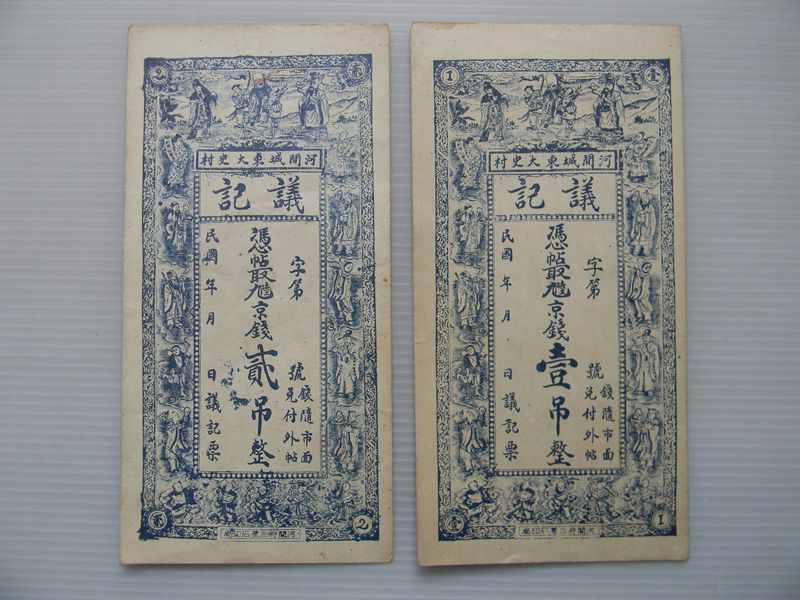 2 貳
河間城東大史村
議記
字第 號
錢隨市面
兌付外帖
憑帖 京錢貳吊整
民國 年 月 日議記票
貳 2
1 壹
河間城東大史村
議記
字第 號
錢隨市面
兌付外帖
憑帖 京錢壹吊整
民國 年 月 日議記票
壹 1